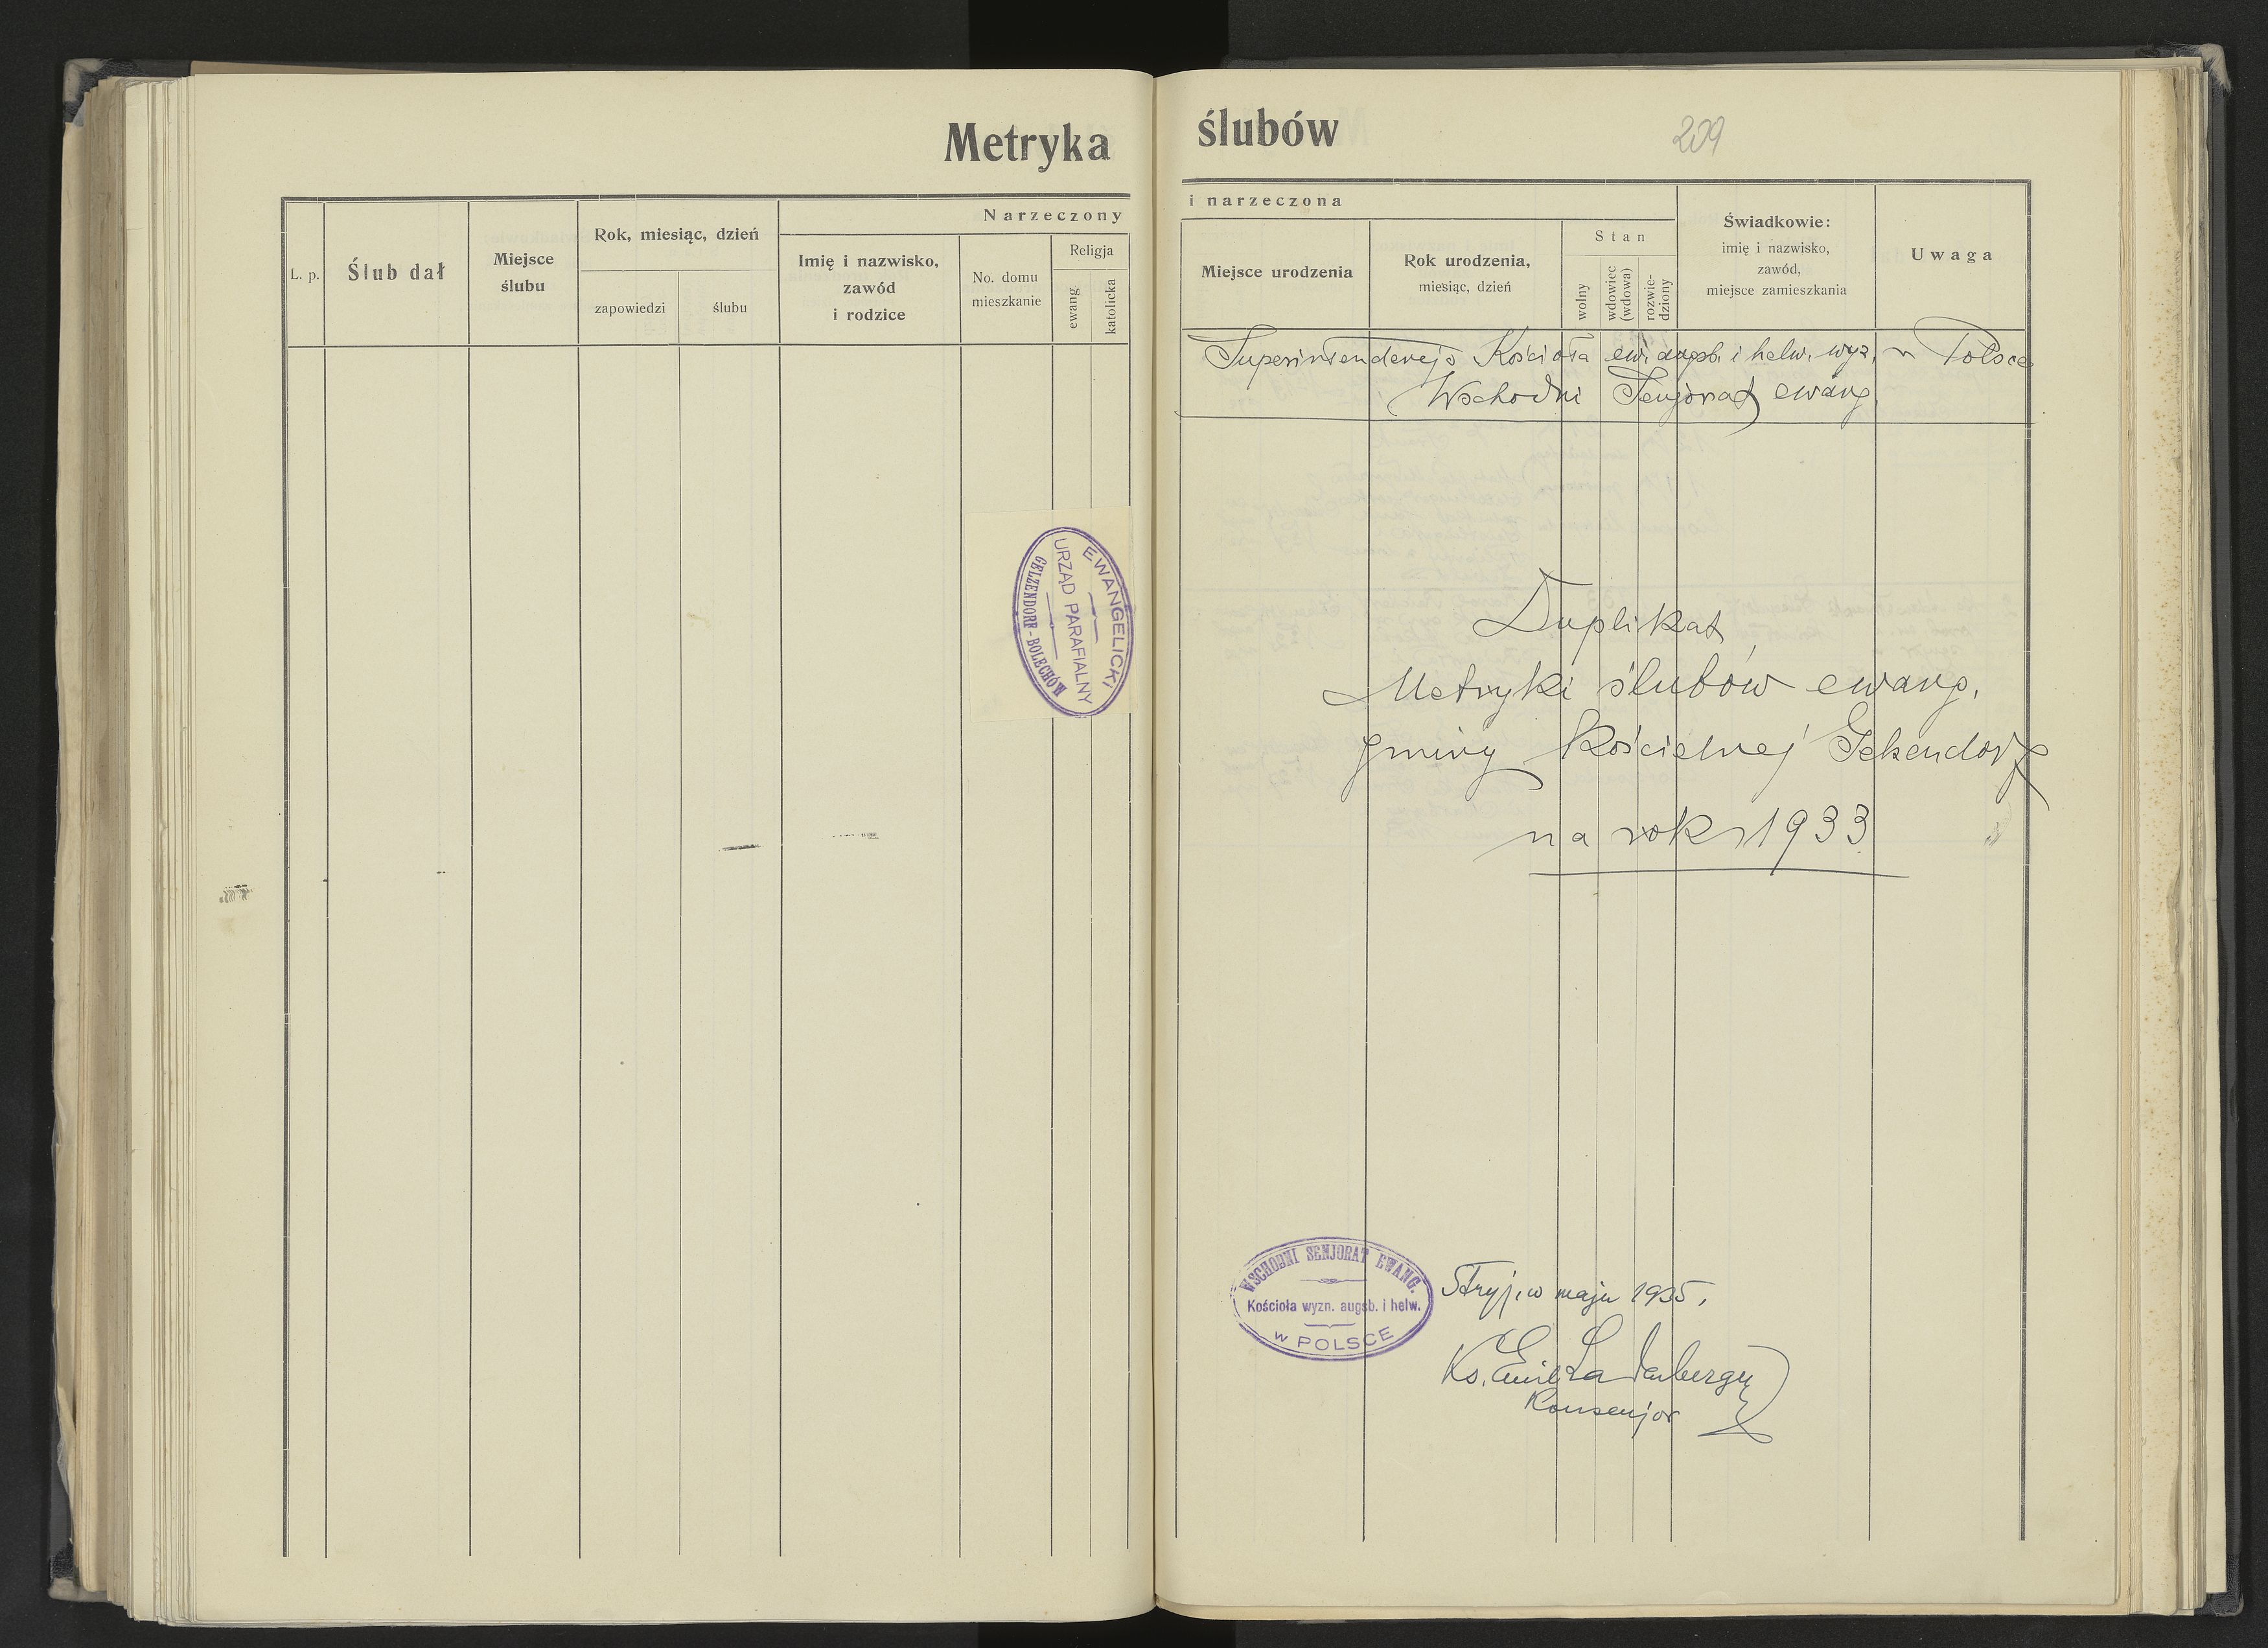 Metryka
Narzeczony
L. p.
Ślub dał
Miejsce
ślubu
Rok, miesiąc, dzień
zapowiedzi
ślubu
Imię i nazwisko,
zawód
i rodzice
No. domu
mieszkanie
Religja
ewang
katolicka
EWANGELICKI
URZĄD PARAFIALNY
GELZENDORF - BOLECHÓW
ślubów
209
i narzeczona
Miejsce urodzenia
Rok urodzenia,
miesiąc, dzień
Stan
wolny
wdowiec
(wdowa)
rozwie-
dziony
Świadkowie:
imię i nazwisko,
zawód,
miejsce zamieszkania
Uwaga
Superintendencja Kościoła ew. augsb. i helw. wyz. w Polsce
Wschodni Senjorat ewang.
Duplikat
Metryki ślubów ewang.
gminy kościelnej Gelsendorf
na rok 1933
WSCHODNI SENJORAT EWANG.
Kościoła wyzn. augsb. i helw.
w POLSCE
Stryj, w maju 1935.
Ks. Emil Ladenberger
Konsenjor